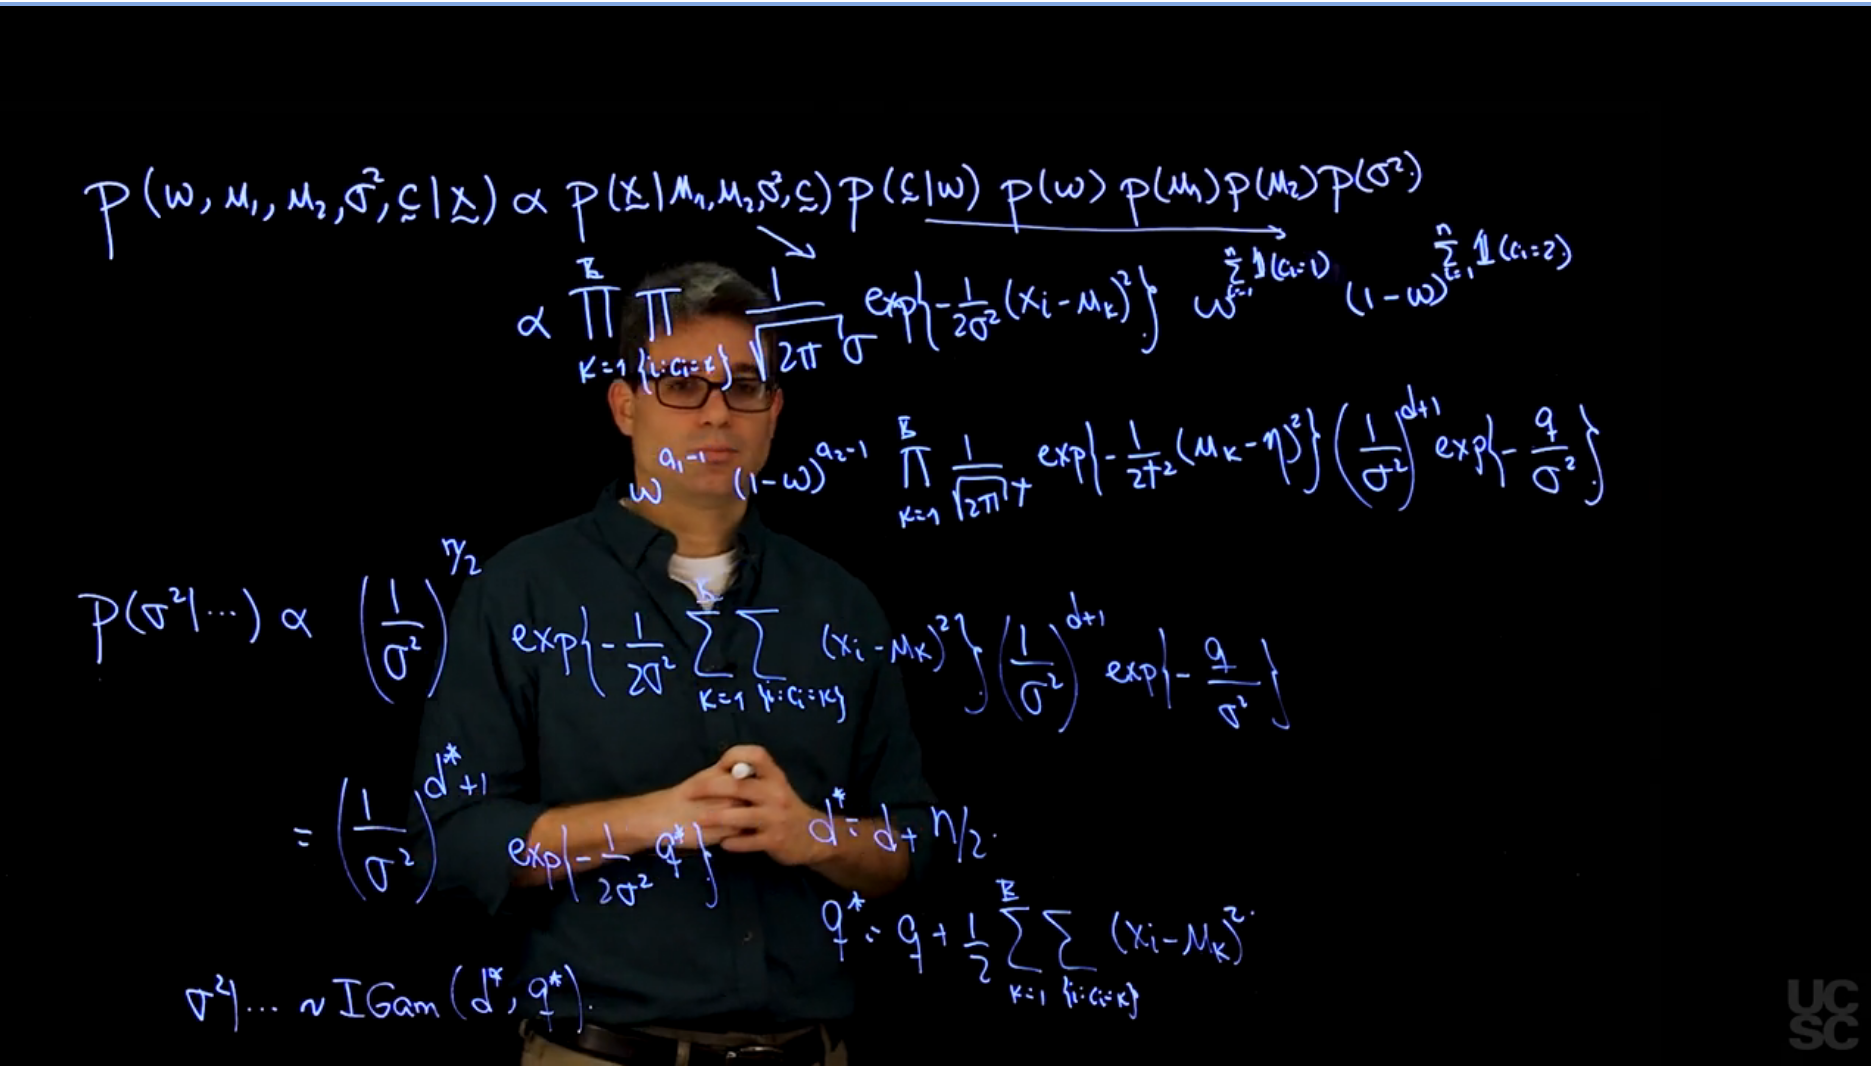 p(ω, μ₁, μ₂, σ², c̰ | x̰) ∝ p(x̰ | μ₁, μ₂, σ², c̰) p(c̰ | ω) p(ω) p(μ₁) p(μ₂) p(σ²)
∝ ∏_{K=1}^{K} ∏_{{i:cᵢ=K}} 1/(√2π σ) exp{-1/(2σ²) (xᵢ-μ_K)²} ω^{∑_{i=1}^{n} 𝟙(cᵢ=1)} (1-ω)^{∑_{i=1}^{n} 𝟙(cᵢ=2)}
ω^{a₁-1} (1-ω)^{a₂-1} ∏_{K=1}^{K} 1/(√2π τ) exp{-1/(2τ²) (μ_K-η)²} (1/σ²)^{d+1} exp{-q/σ²}
p(σ²|...) ∝ (1/σ²)^{n/2} exp{-1/(2σ²) ∑_{K=1}^{K} ∑_{{i:cᵢ=K}} (xᵢ-μ_K)²} (1/σ²)^{d+1} exp{-q/σ²}
= (1/σ²)^{d*+1} exp{-1/(2σ²) q*} d* = d + n/2.
q* = q + 1/2 ∑_{K=1}^{K} ∑_{{i:cᵢ=K}} (xᵢ-μ_K)².
σ²|... ~ IGam(d*, q*).
UC
SC